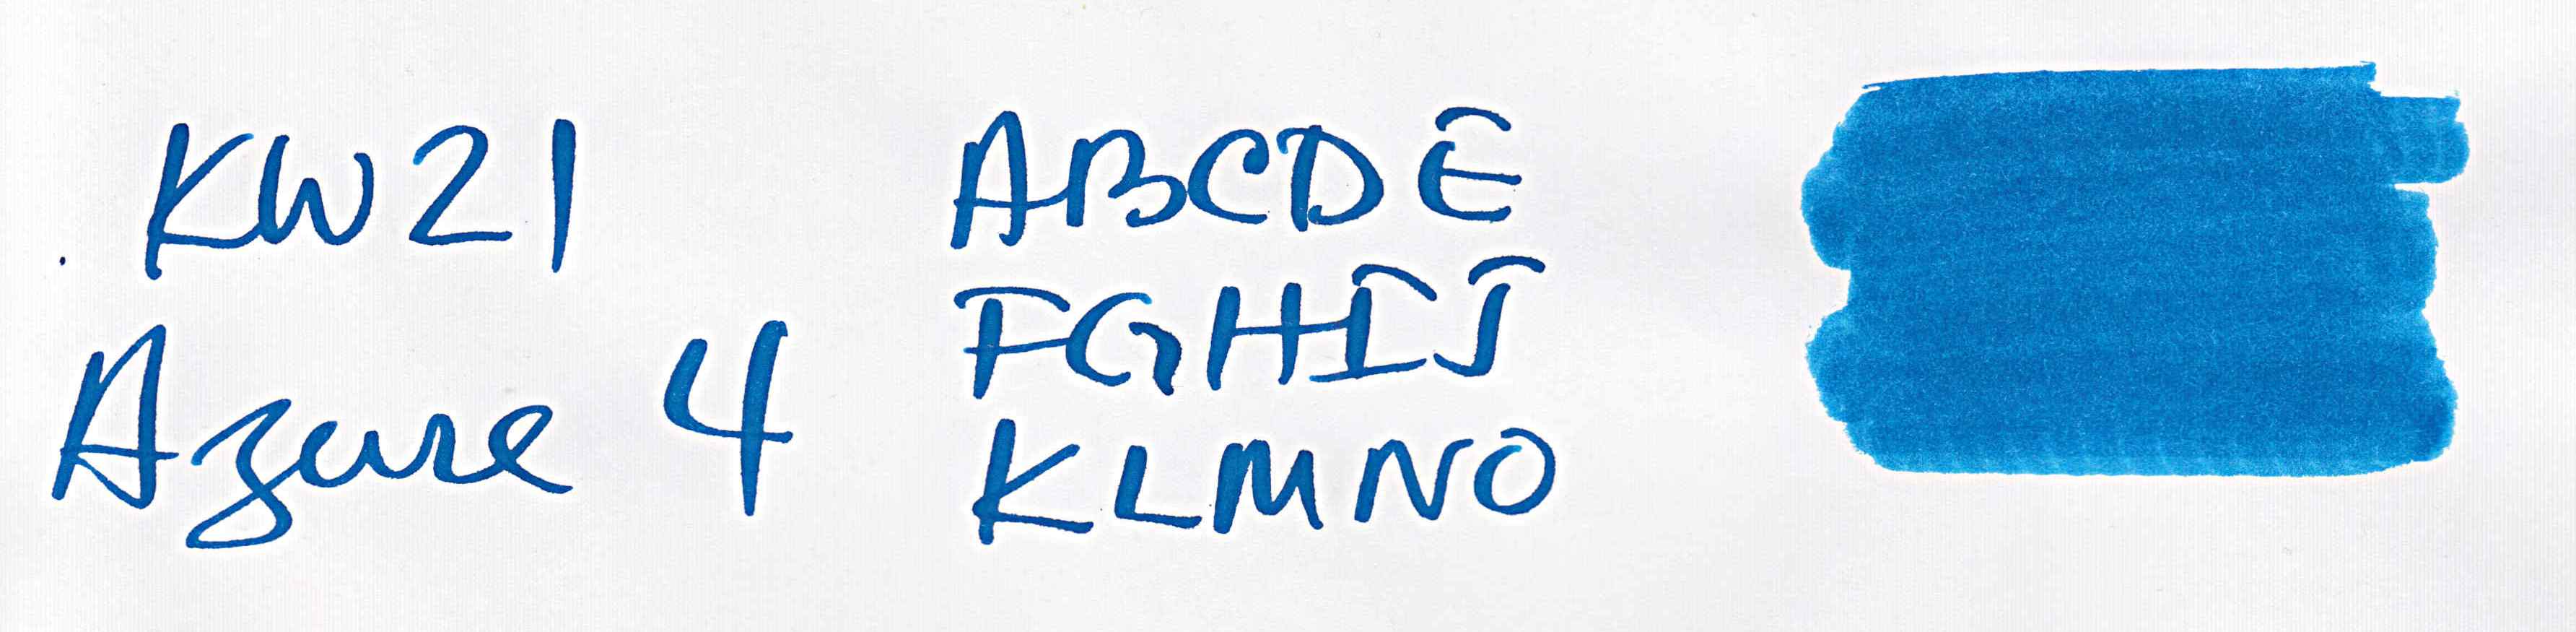 KW21
Azure 4
ABCDE
FGHIJ
KLMNO